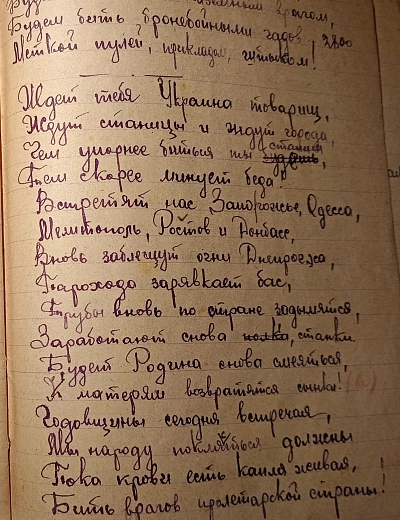 Будем бить бронебойными гадов зло
Меткой пулей, прикладом, штыком!
Ждет тебя Украина товарищ,
Ждут станицы и ждут города,
Чем упорнее биться ты станешь,
Тем скорее минует беда!
Встретят нас Запорожье, Одесса,
Мелитополь, Ростов и Донбасс,
Вновь заблещут огни Днепрогэса,
Парохода зарявкает бас,
Трубы вновь по стране задымятся,
Заработают снова станки
Будет Родина снова смеяться,
К матерям возвратятся сынки!
Годовщины сегодня встречая,
Мы народу поклясться должены
Пока крови есть капля живая,
Бить врагов пролетарской страны!